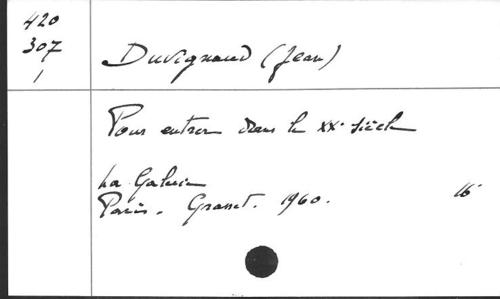 420
307
1
Duvignaud (Jean)
Pour entrer dans le XXe siècle
La Galerie
Paris. Grasset. 1960. 16°